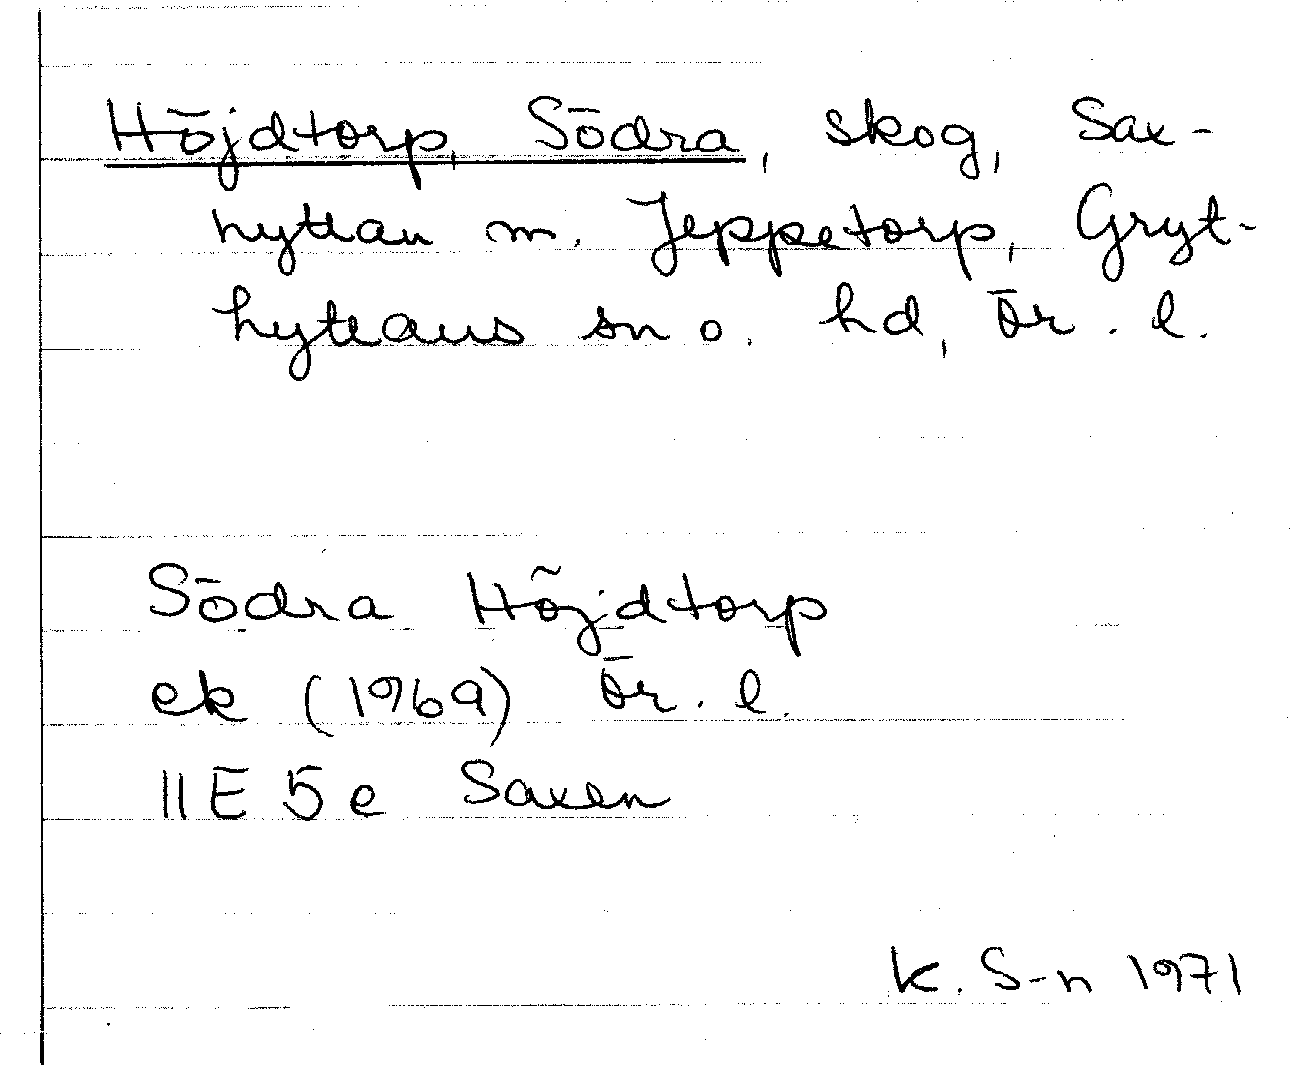 Höjdtorp, Södra, skog, Sax-
hyttan m. Jeppetorp, Gryt-
hyttans sn o. hd, Ör. l.
Södra Höjdtorp
ek (1969) Ör. l.
11E 5e Saxen
K. S-n 1971